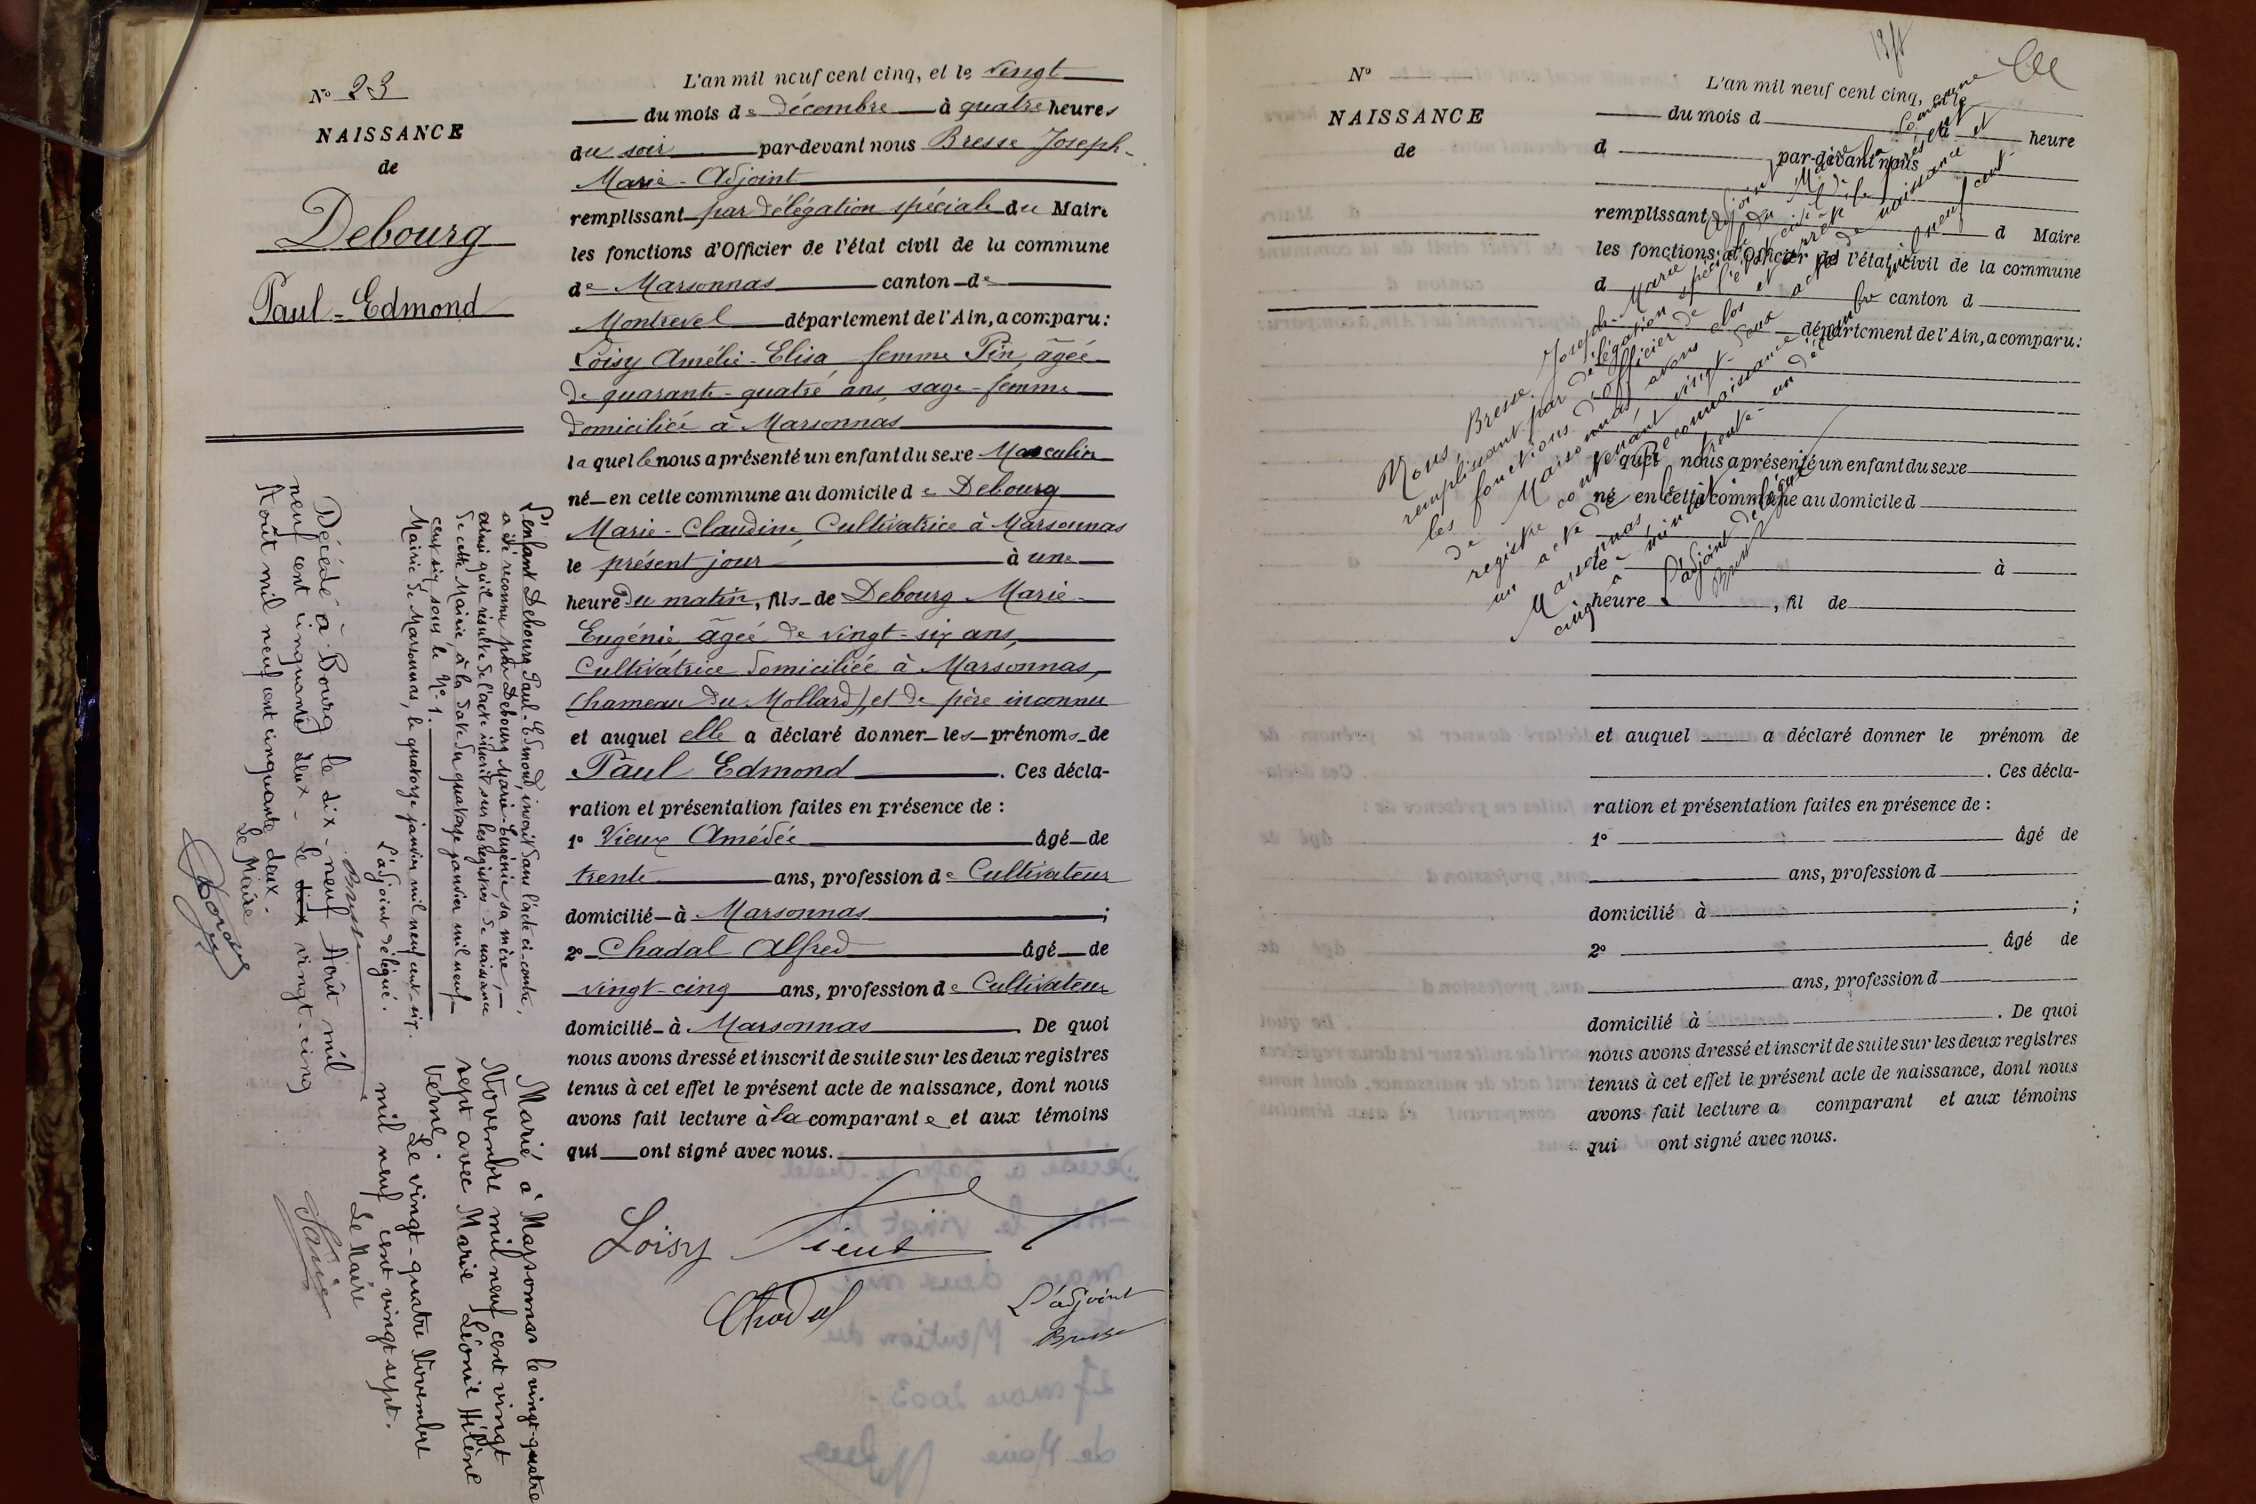 N° 23
NAISSANCE
de
Debourg
Paul-Edmond
L'an mil neuf cent cinq, et le vingt
du mois de décembre à quatre heures
du soir par-devant nous Bresse Joseph-
Marie - Adjoint
remplissant par délégation spéciale du Maire
les fonctions d'Officier de l'état civil de la commune
de Marsonnas canton de
Montrevel département de l'Ain, a comparu :
Loisy Amélie-Elisa femme Pin, âgée
de quarante-quatre ans, sage-femme
domiciliée à Marsonnas
laquelle nous a présenté un enfant du sexe Masculin
né en cette commune au domicile de Debourg
Marie-Claudine Cultivatrice à Marsonnas
le présent jour à une
heure du matin, fils de Debourg Marie-
Eugénie âgée de vingt-six ans,
Cultivatrice domiciliée à Marsonnas,
(hameau du Mollard), et de père inconnu
et auquel elle a déclaré donner les prénoms de
Paul Edmond. Ces décla-
ration et présentation faites en présence de :
1° Vieux Amédée âgé de
trente ans, profession de Cultivateur
domicilié à Marsonnas ;
2° Chadal Alfred âgé de
vingt-cinq ans, profession de Cultivateur
domicilié à Marsonnas. De quoi
nous avons dressé et inscrit de suite sur les deux registres
tenus à cet effet le présent acte de naissance, dont nous
avons fait lecture à la comparante et aux témoins
qui ont signé avec nous.
Loisy Vieux
Chadal
L'adjoint
Bresse
L'enfant Debourg Paul-Edmond, inscrit dans l'acte ci-contre,
a été reconnu par Debourg Marie-Eugénie, sa mère,
ainsi qu'il résulte de l'acte inscrit sur les registres de naissance
de cette Mairie, à la date du quatorze janvier mil neuf-
cent six, sous le N° 1.
Mairie de Marsonnas, le quatorze janvier mil neuf cent-six.
L'adjoint délégué.
Bresse
Décédé à Bourg le dix-neuf Août mil
neuf cent cinquante deux - Le dix vingt-cinq
Août mil neuf cent cinquante deux-
Le Maire
Marié à Marsonnas le vingt-quatre
Novembre mil neuf cent vingt
sept avec Marie Léonie Hélène
Verne.
Le vingt-quatre Novembre
mil neuf cent vingt sept.
Le Maire
N°
NAISSANCE
de
L'an mil neuf cent cinq, et le
du mois d à heure
d par-devant nous
remplissant d Maire
les fonctions d'Officier de l'état civil de la commune
d canton d
département de l'Ain, a comparu :
quel nous a présenté un enfant du sexe
né en cette commune au domicile d
le à
heure , fil de
et auquel a déclaré donner le prénom de
. Ces décla-
ration et présentation faites en présence de :
1° âgé de
ans, profession d
domicilié à ;
2° âgé de
ans, profession d
domicilié à . De quoi
nous avons dressé et inscrit de suite sur les deux registres
tenus à cet effet le présent acte de naissance, dont nous
avons fait lecture a comparant et aux témoins
qui ont signé avec nous.
Nous, Bresse Joseph-Marie Adjoint
remplissant par délégation spéciale du Maire
les fonctions d'officier de l'état civil de la Commune
de Marsonnas, avons clos et arrêté le présent
registre contenant vingt-deux actes de naissance et
un acte de Reconnaissance
Marsonnas le trente-un décembre mil neuf cent-
cinq
L'adjoint délégué
Bresse